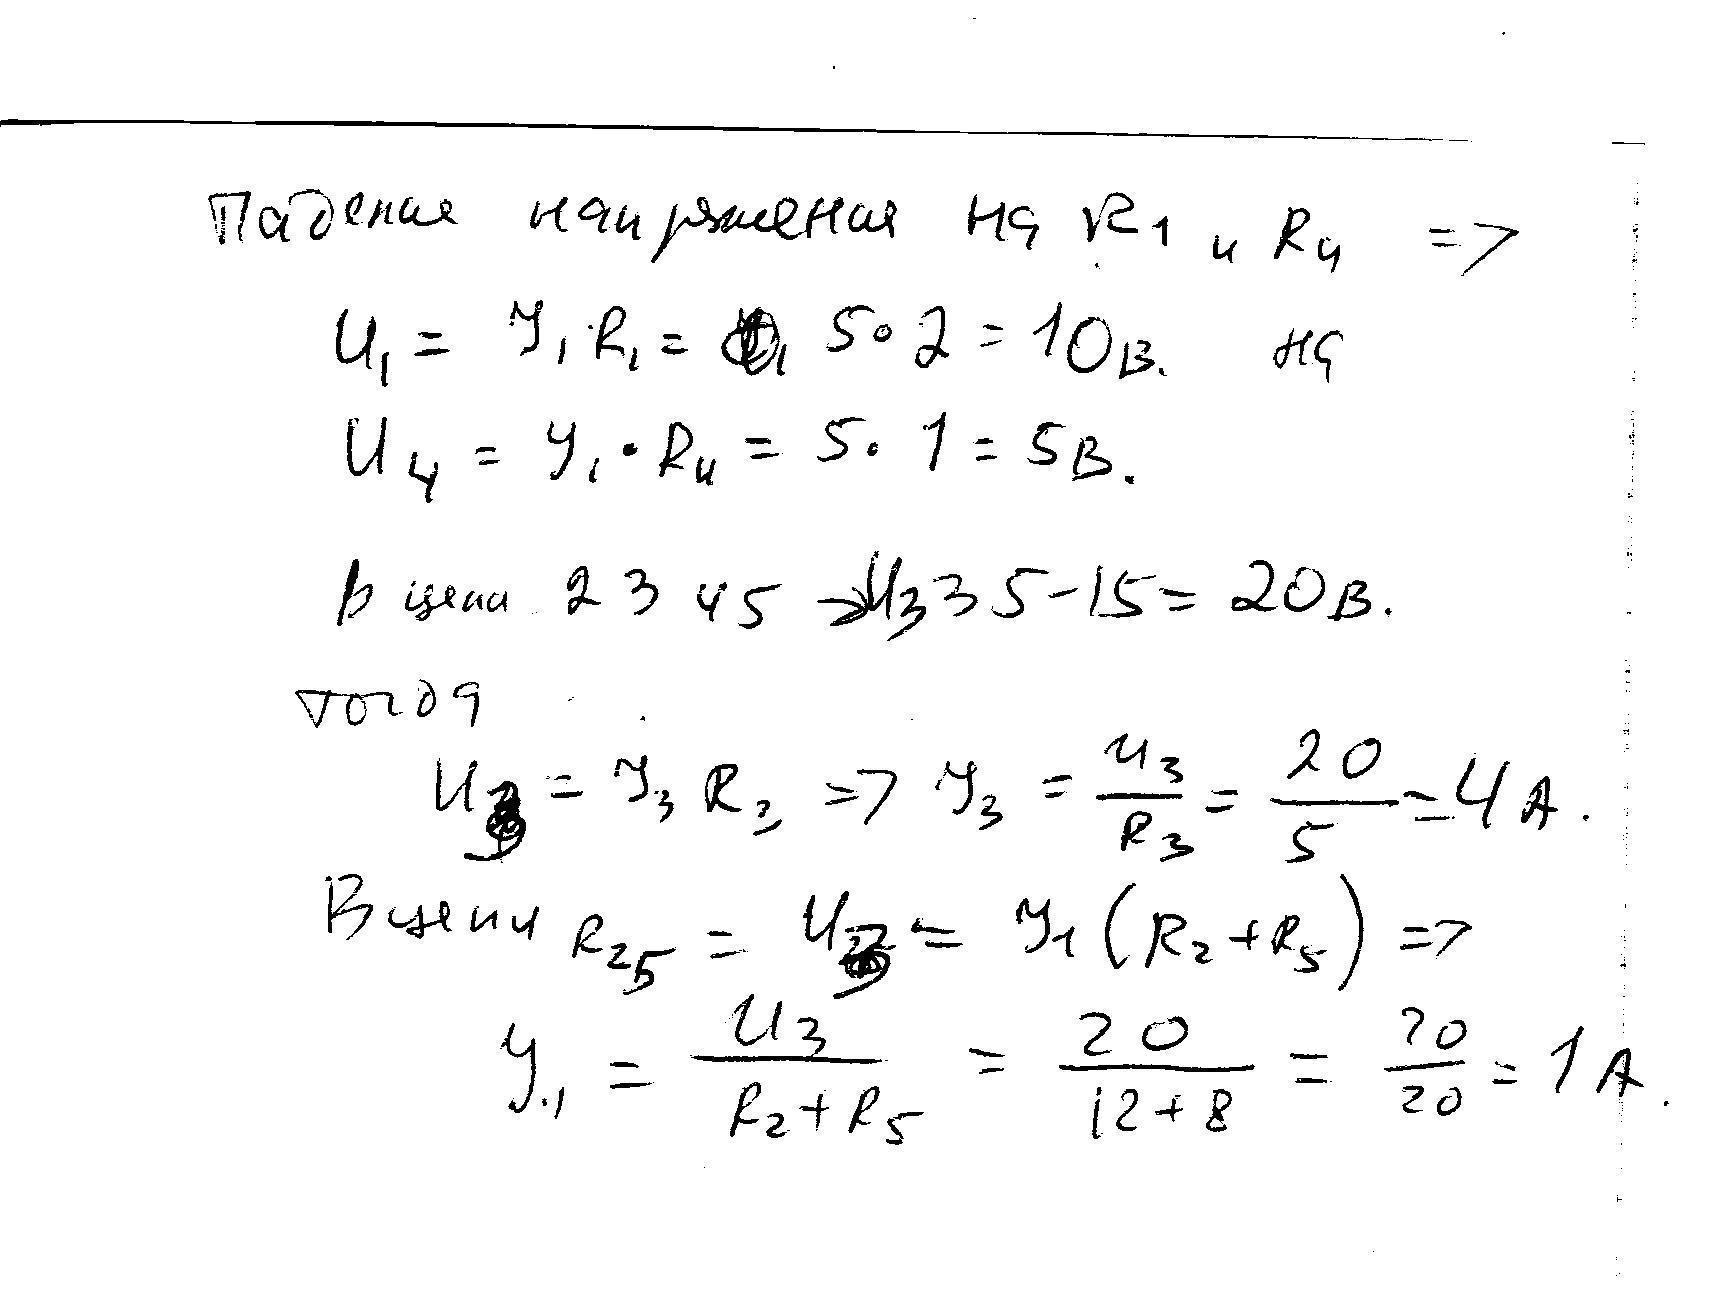 Падение напряжения на R1 и R4 =>
U1 = У1 R1 = 5•2 = 10В. на
U4 = У1 • R4 = 5•1 = 5В.
В цепи 2345 → U3 35-15 = 20В.
тогда
U3 = У3 R3 => У3 = U3/R3 = 20/5 = 4А.
В цепи R25 = U3 = У1 (R2+R5) =>
У1 = U3/(R2+R5) = 20/(12+8) = 20/20 = 1А.